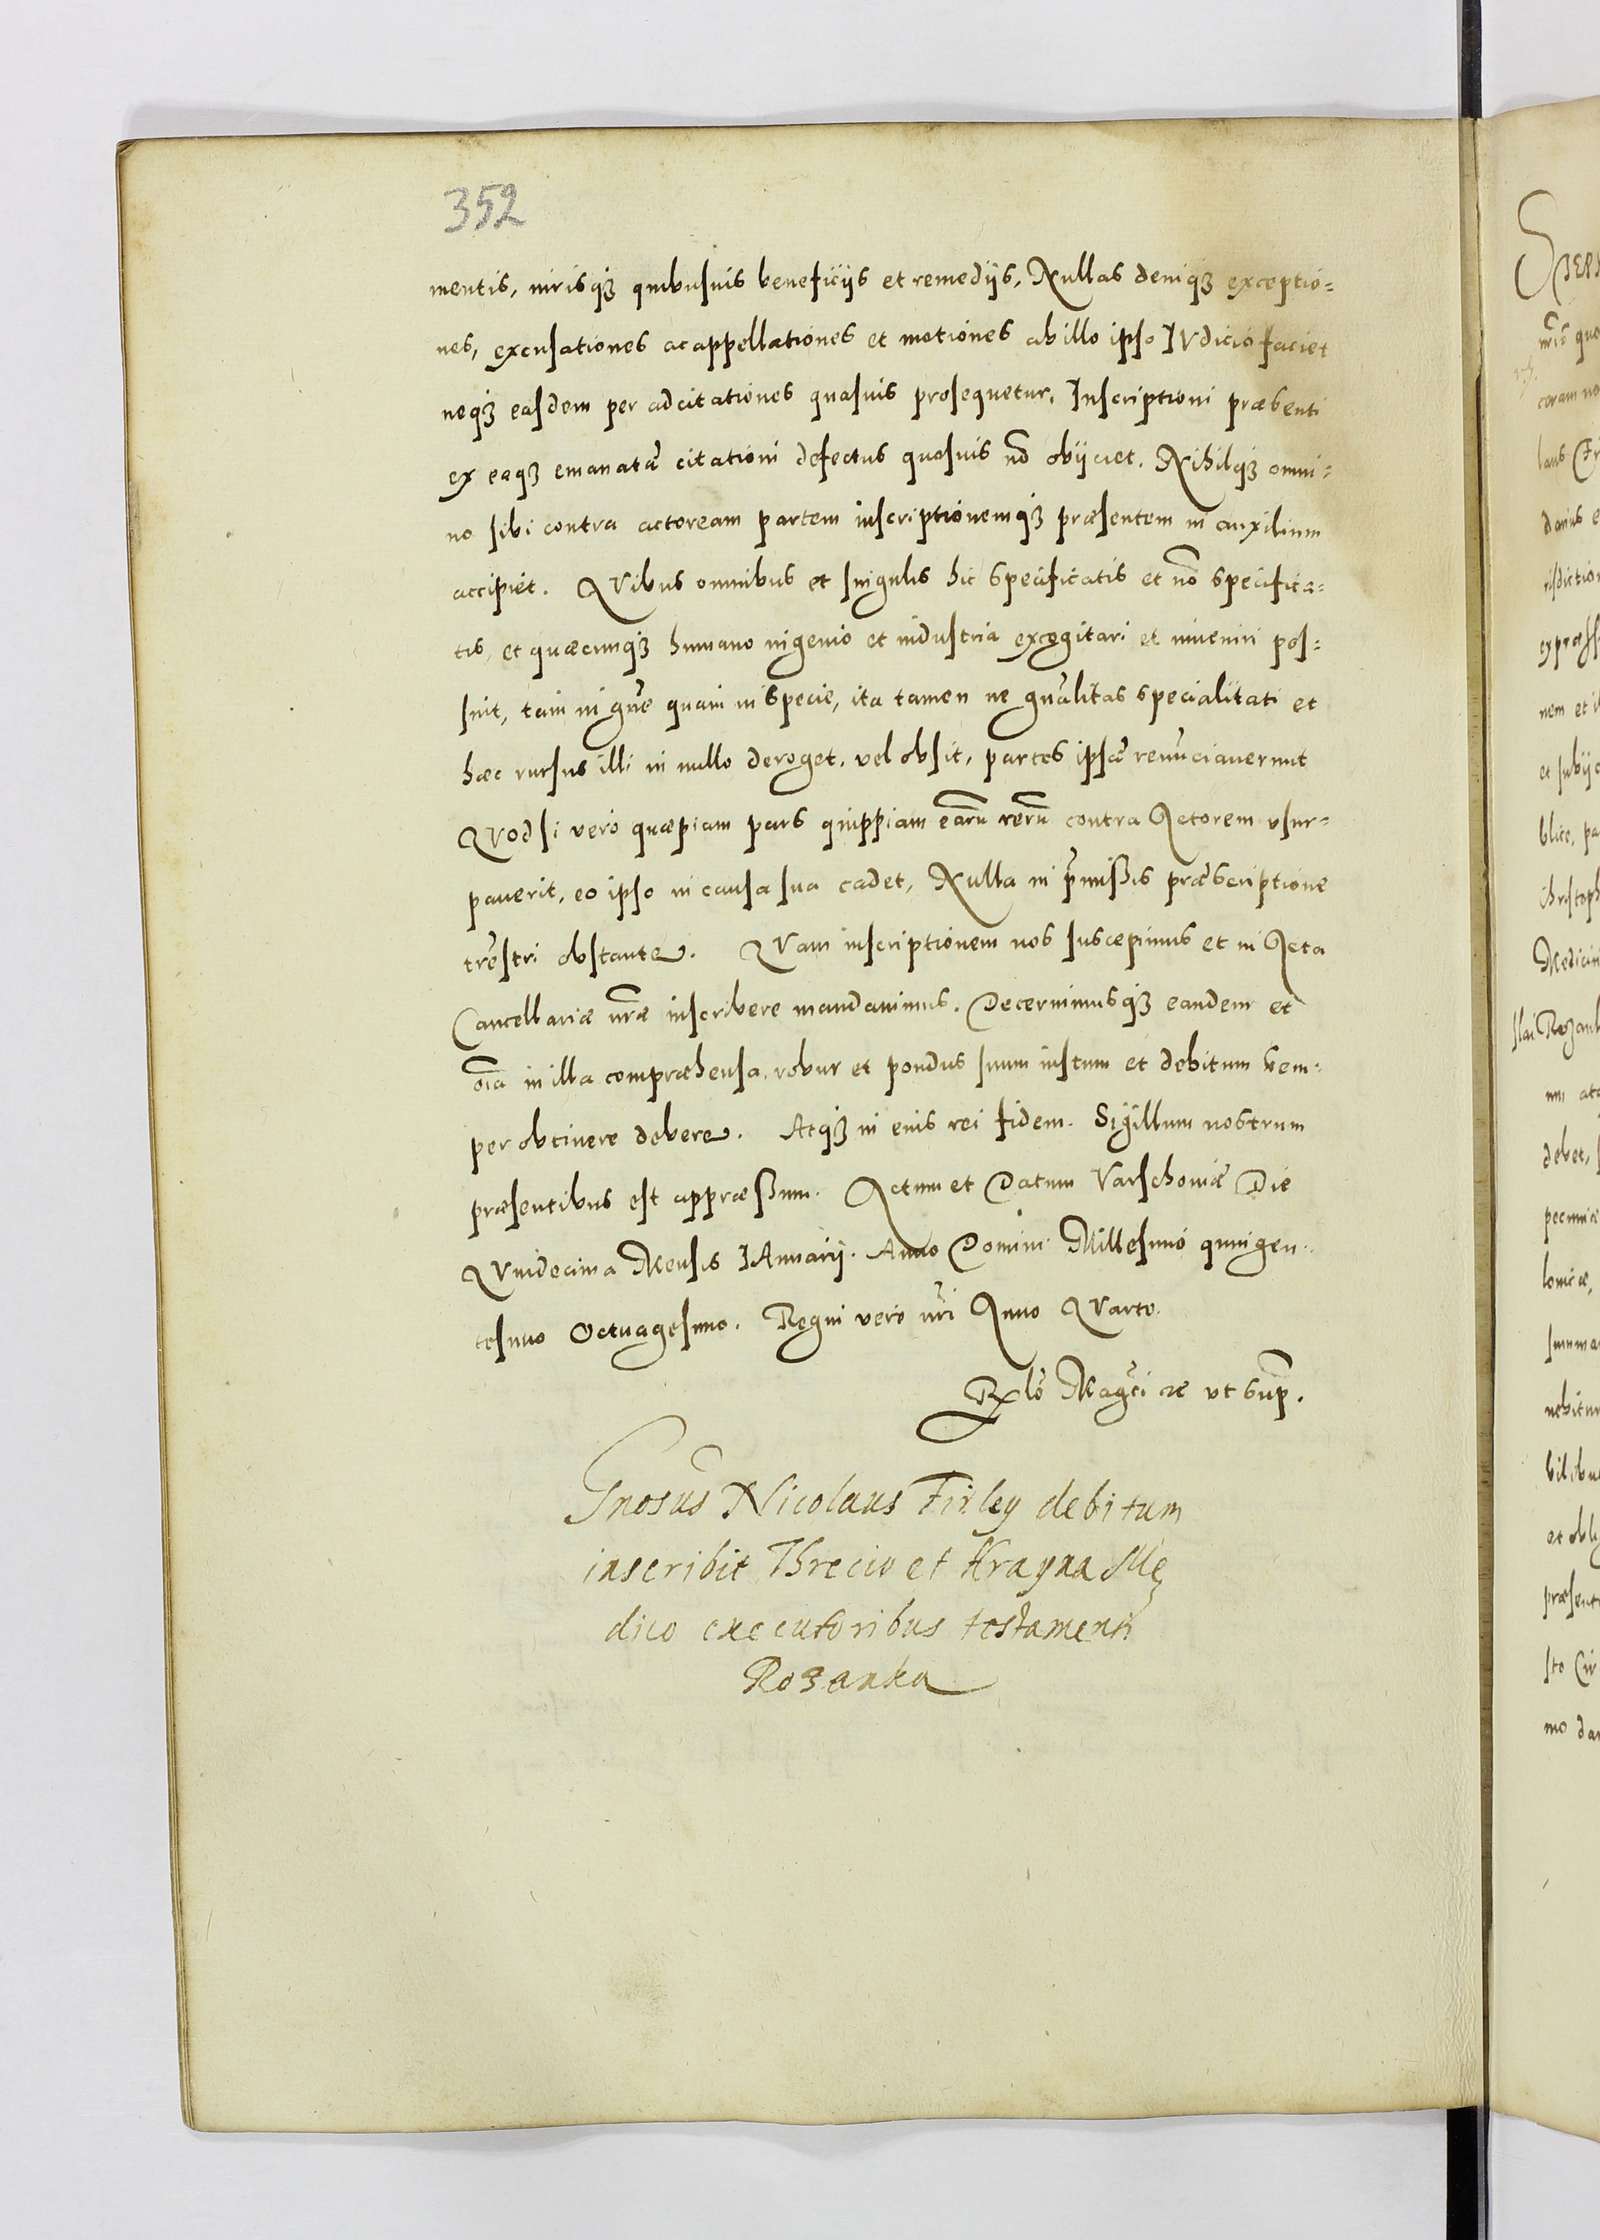 352
mentis, iurisq3 quibusuis beneficijs et remedijs, Nullas deniq3 exceptio=
nes, excusationes ac appellationes et motiones ab illo ipso IVdicio faciet
neq3 easdem per adcitationes quasuis prosequetur, Inscriptioni præsenti
ex eaq3 emanatæ citationi defectus quosuis nō obijciet. Nihilq3 omni=
no sibi contra actoream partem inscriptionemq3 præsentem in auxilium
accipiet. QVibus omnibus et singulis hic specificatis et nō specifica=
tis, et quæcunq3 humano ingenio et industria excogitari et inueniri pos=
sint, tam in gñe quam in specie, ita tamen ne gñalitas specialitati et
hæc rursus illi in nullo deroget, vel obsit, partes ipsæ renūciauerunt
QVodsi vero quæpiam pars quippiam earū rerū contra Actorem vsur=
pauerit, eo ipso in causa sua cadet, Nulla in p̃missis præscriptione
tr̃estri obstante. QVam inscriptionem nos suscepimus et in Acta
Cancellariæ nr̃æ inscribere mandauimus. Decernimusq3 eandem et
oĩa in illa compræhensa, robur et pondus suum iustum et debitum sem=
per obtinere debere. Atq3 in eius rei fidem. Sigillum nostrum
præsentibus est appræssum. Actum et Datum Varschouiæ Die
QVindecima Mensis IAnuarij. Anno Domini Millesimo quingen=
tesimo Octuagesimo. Regni vero nr̃i Anno QVarto.
Rlõ Magci æ vt sup.
Gnosus Nicolaus Firley debitum
inscribit Threcio et Krayna Me
dico executoribus testamenti
Rozanka